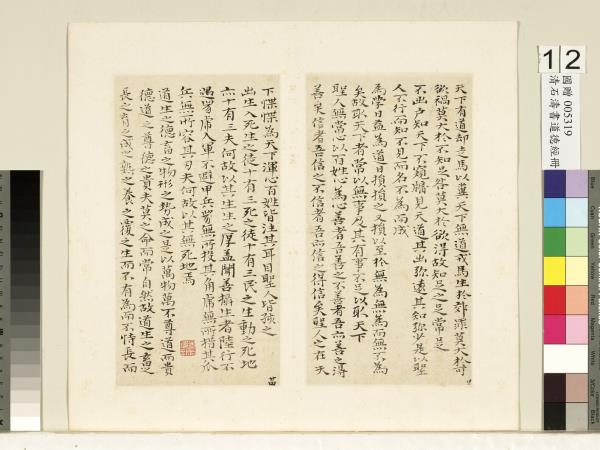 天下有道却走馬以糞天下無道戎馬生於郊罪莫大於可
欲禍莫大於不知足咎莫大於欲得故知足之足常足
不出戶知天下不窺牖見天道其出彌遠其知弥少是以聖
人不行而知不見而名不為而成
為學日益為道日損損之又損以至於無為無為而無不為
矣故取天下者常以無事及其有事不足以取天下
聖人無常心以百姓心為心善者吾善之不善者吾亦善之得
善矣信者吾信之不信者吾亦信之得信矣聖人之在天
下惵惵為天下渾心百姓皆注其耳目聖人皆孩之
出生入死生之徒十有三死之徒十有三民之生動之死地
亦十有三夫何故以其生生之厚蓋聞善攝生者陸行不
遇兕虎入軍不避甲兵兕無所投其角虎無所措其爪
兵無所容其刃夫何故以其無死地焉
道生之德畜之物形之勢成之是以萬物莫不尊道而貴
德道之尊德之貴夫莫之命而常自然故道生之畜之
長之育之成之熟之養之覆之生而不有為而不恃長而
12
國贈 005319
清石濤書道德經冊
Blue
Cyan
Green
Yellow
Red
Magenta
White
3/Color
Black